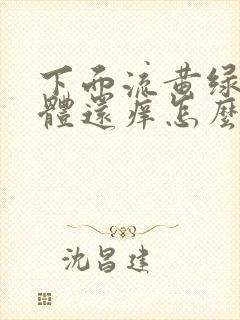 下面流黄绿
體還痒怎麼
沈昌建